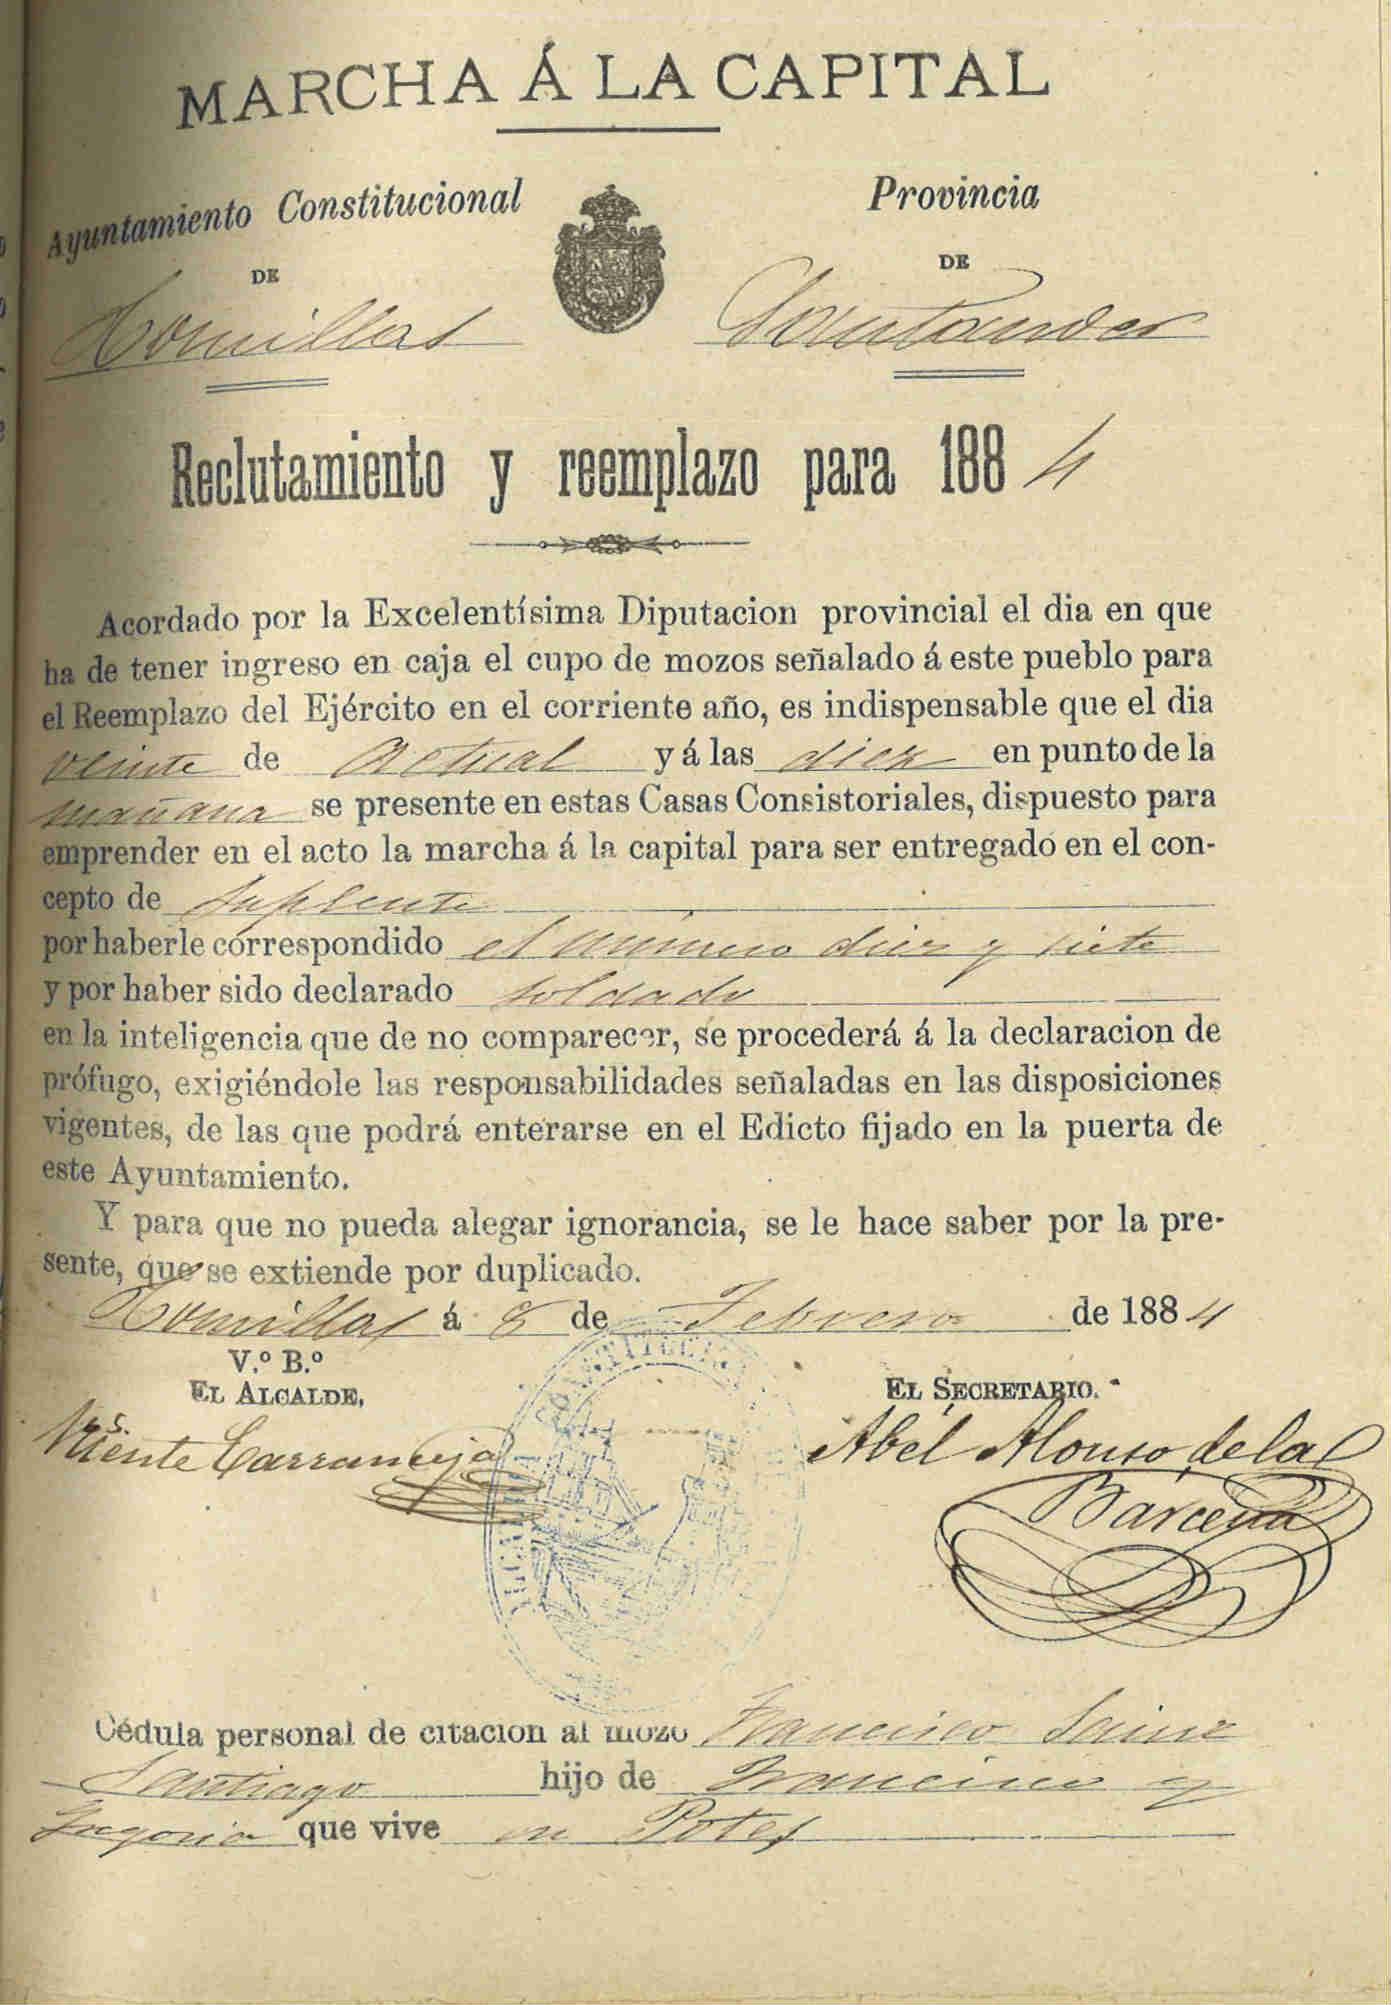 MARCHA Á LA CAPITAL
Ayuntamiento Constitucional
DE
Comillas
Provincia
DE
Santander
Reclutamiento y reemplazo para 1884
Acordado por la Excelentísima Diputacion provincial el dia en que
ha de tener ingreso en caja el cupo de mozos señalado á este pueblo para
el Reemplazo del Ejército en el corriente año, es indispensable que el dia
veinte de actual y á las diez en punto de la
mañana se presente en estas Casas Consistoriales, dispuesto para
emprender en el acto la marcha á la capital para ser entregado en el con-
cepto de Suplente
por haberle correspondido el número diez y siete
y por haber sido declarado soldado
en la inteligencia que de no comparecer, se procederá á la declaracion de
prófugo, exigiéndole las responsabilidades señaladas en las disposiciones
vigentes, de las que podrá enterarse en el Edicto fijado en la puerta de
este Ayuntamiento.
Y para que no pueda alegar ignorancia, se le hace saber por la pre-
sente, que se extiende por duplicado.
Comillas á 8 de Febrero de 1884
V.º B.º
EL ALCALDE,
Vicente Carranceja
EL SECRETARIO.
Abel Alonso de la
Barcena
Cédula personal de citacion al mozo Francisco Sainz
Santiago hijo de Francisco y
que vive en Potes